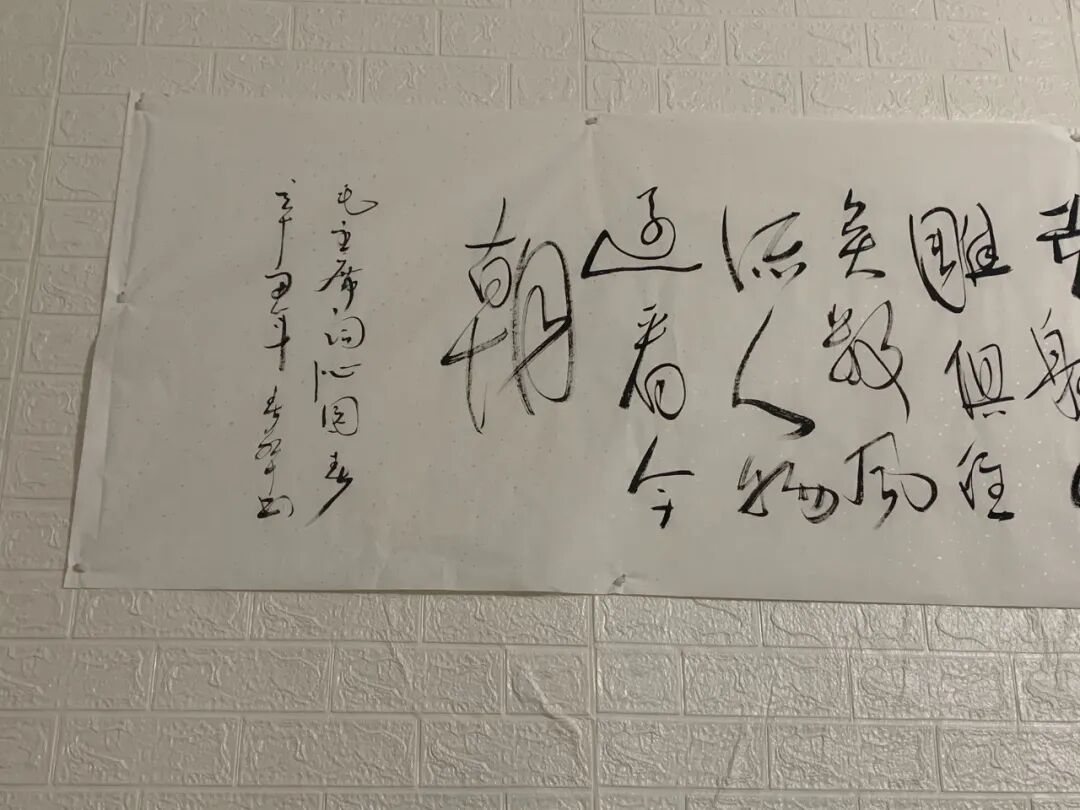 雕俱往
矣数风
流人物
还看今
朝
毛主席词沁园春
辛丑年